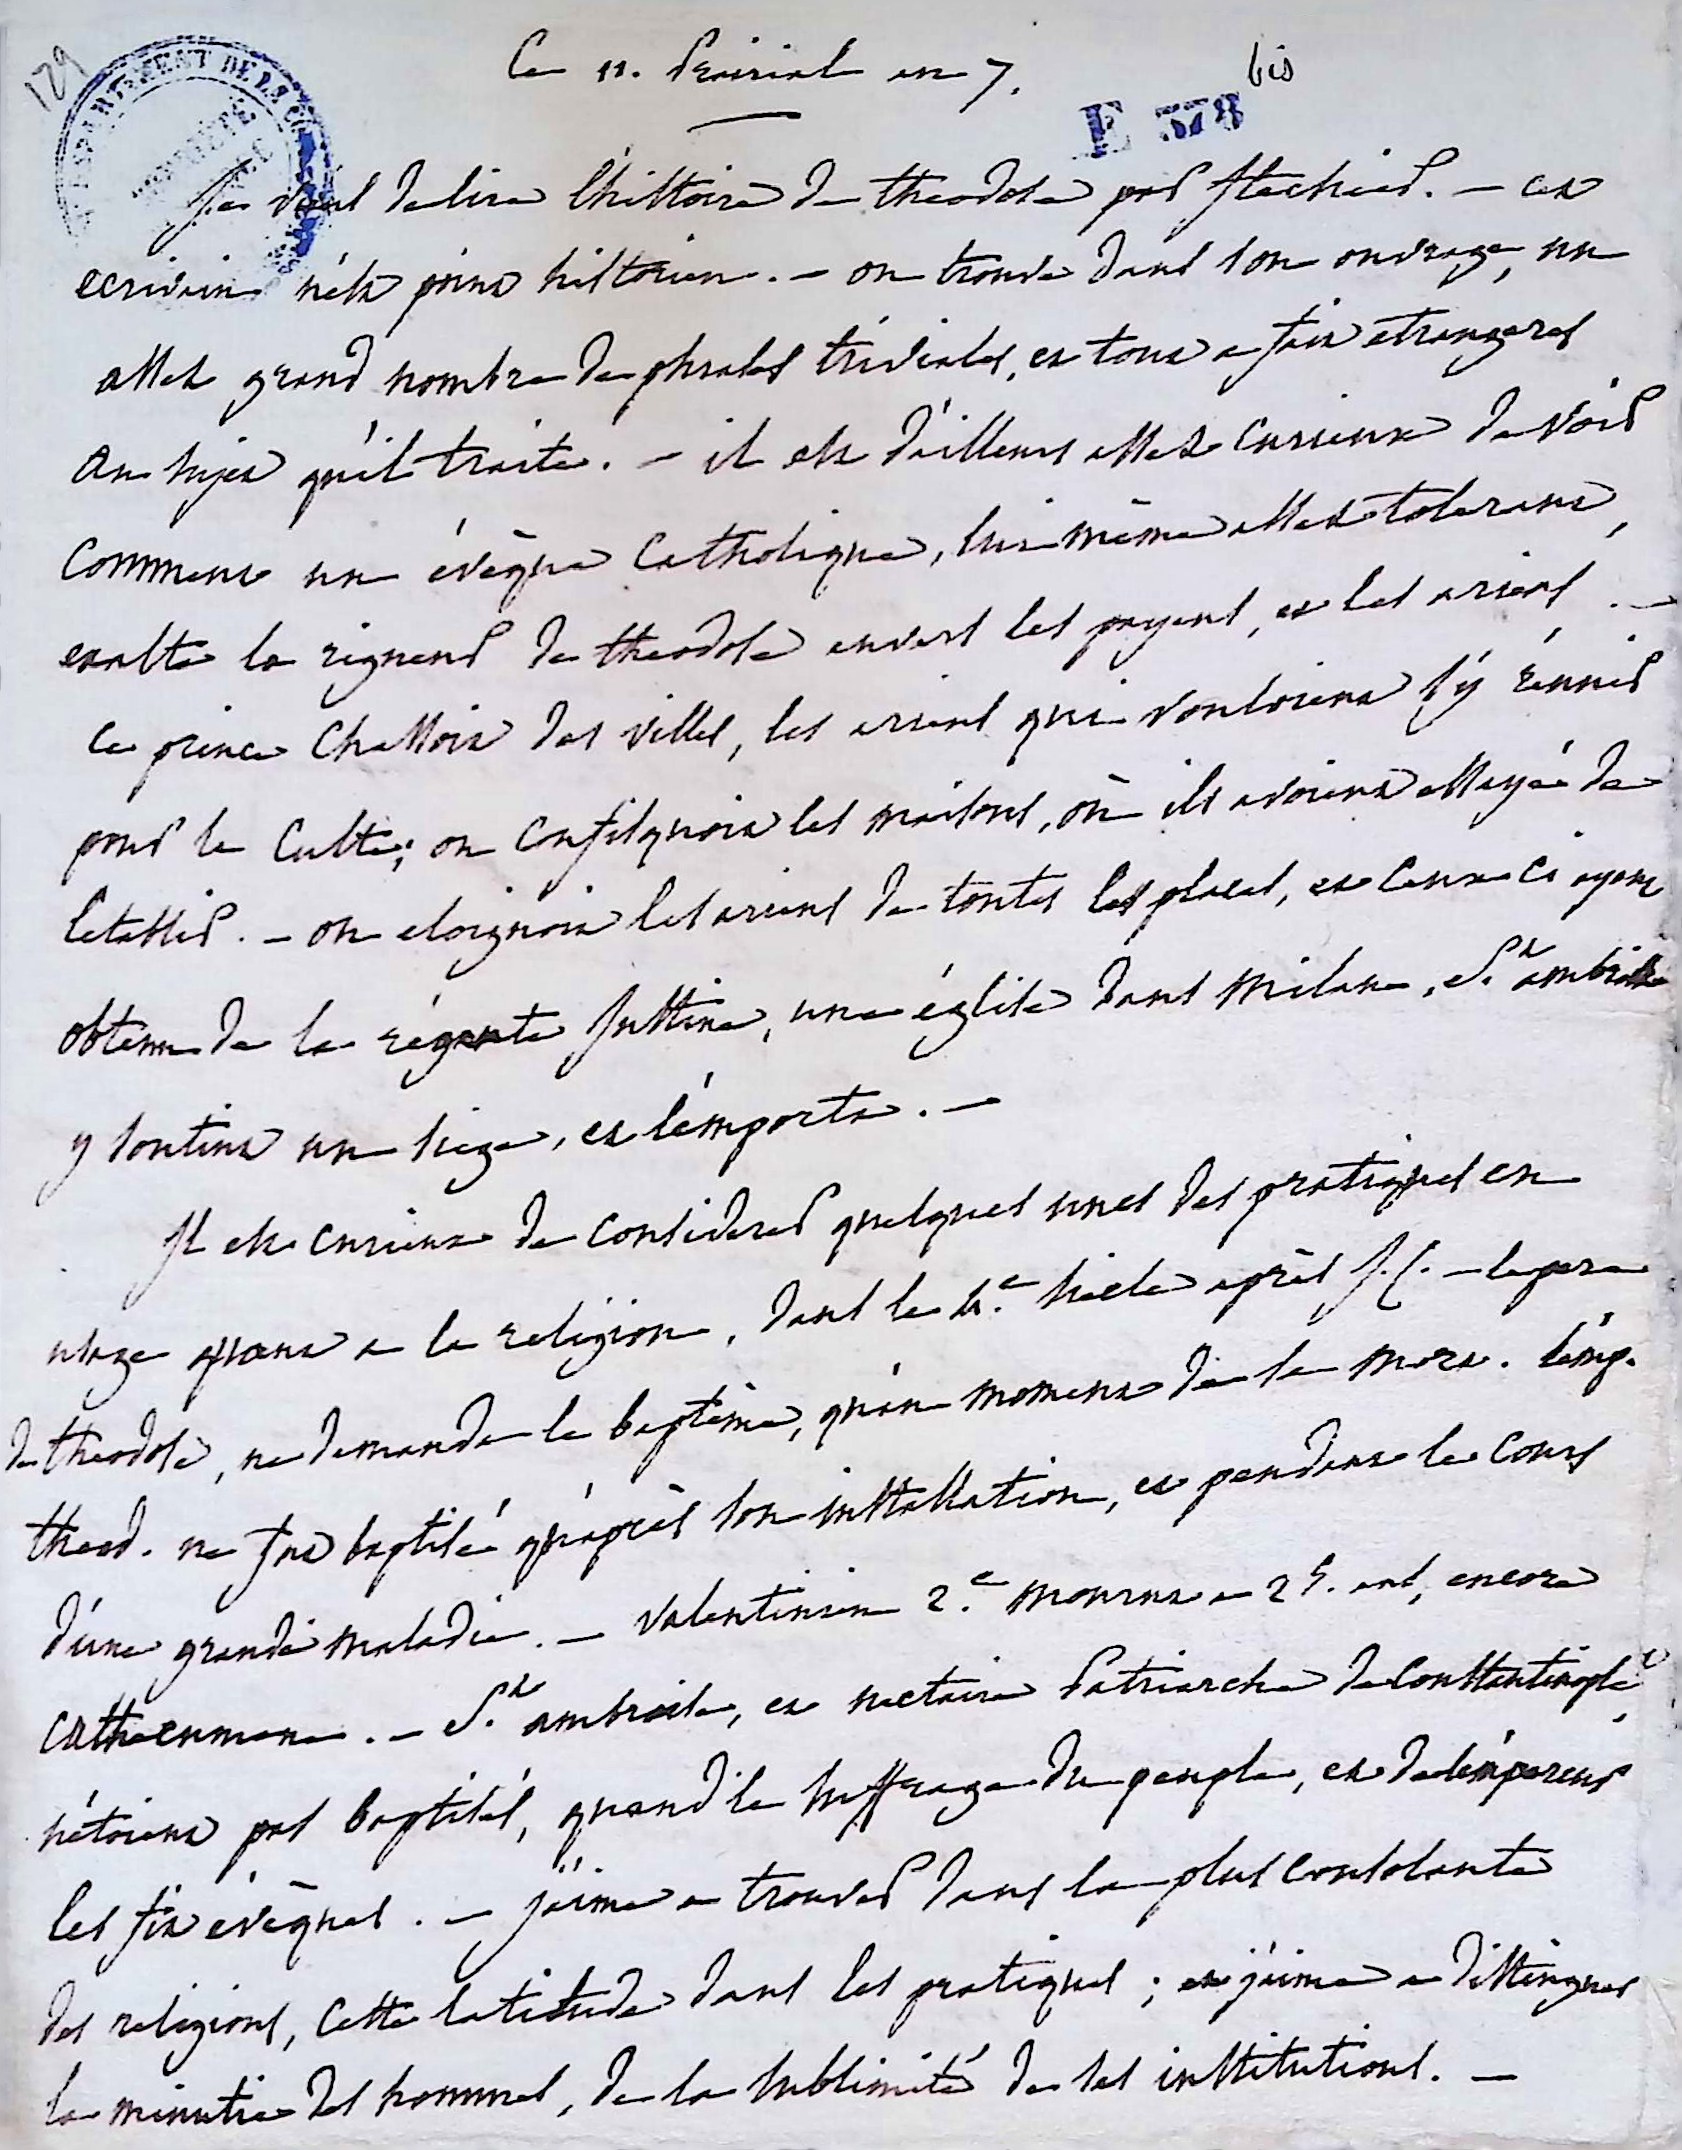 129
Ce 11. Prairial an 7.
bis
E 378
DEPARTEMENT DE LA
Je viens de lire l'histoire de theodose par flechier. – cet
ecrivain n'est point historien. – on trouve dans son ouvrage, un
assez grand nombre de phrases triviales, et tout a fait etrangeres
au sujet qu'il traite. – il est d'ailleurs assez curieux de voir
comment un évèque catholique, lui même assez tolerant,
exalte la rigueur de theodose envers les payens, et les ariens. –
ce prince chassoit des villes, les ariens qui vouloient s'y réunir
pour le culte; on confisquoit les maisons, où ils avoient essayé de
l'etablir. – on eloignoit les ariens de toutes les places, et ceux ci ayant
obtenu de la régente Justine, une église dans Milan, St. ambroise
y soutint un siege, et l'emporta. –
Il est curieux de considerer quelques unes des pratiques en
usage quant a la religion, dans le 4.e siecle après J.C. – le pere
de theodose, ne demanda le baptême, qu'au moment de la mort. l'emp.
theod. ne fut baptisé qu'après son installation, et pendant le cours
d'une grande maladie. – valentinien 2.e mourut a 25. ans, encore
cathecumene. – St. ambroise, et nectaire Patriarche de Constantinople,
n'étoient pas baptisés, quand le suffrage du peuple, et de l'empereur
les fit évèques. – j'aime a trouver dans la plus consolante
des religions, cette latitude dans les pratiques; et j'aime a distinguer
la minutie des hommes, de la sublimité de ses institutions. –